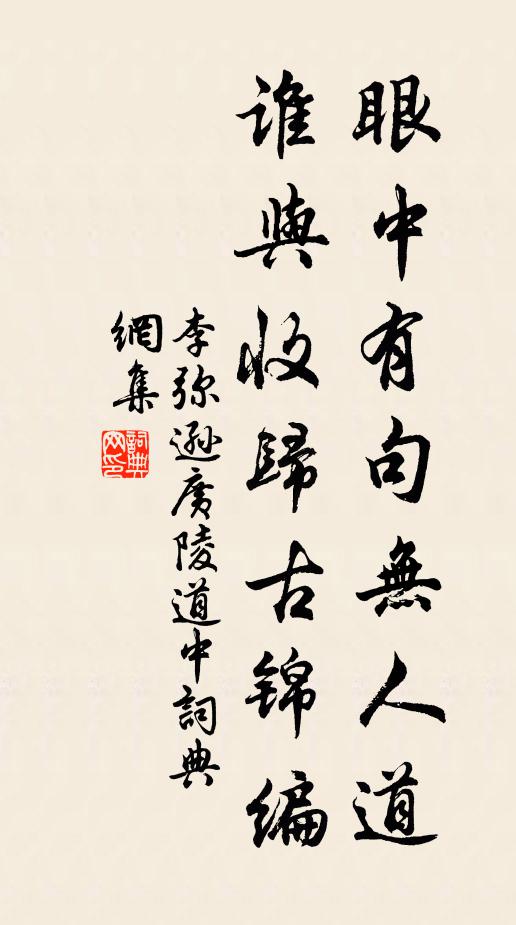 眼中有句無人道
誰與收歸古錦編
李弥遜廣陵道中詞典
網集
詞典網印